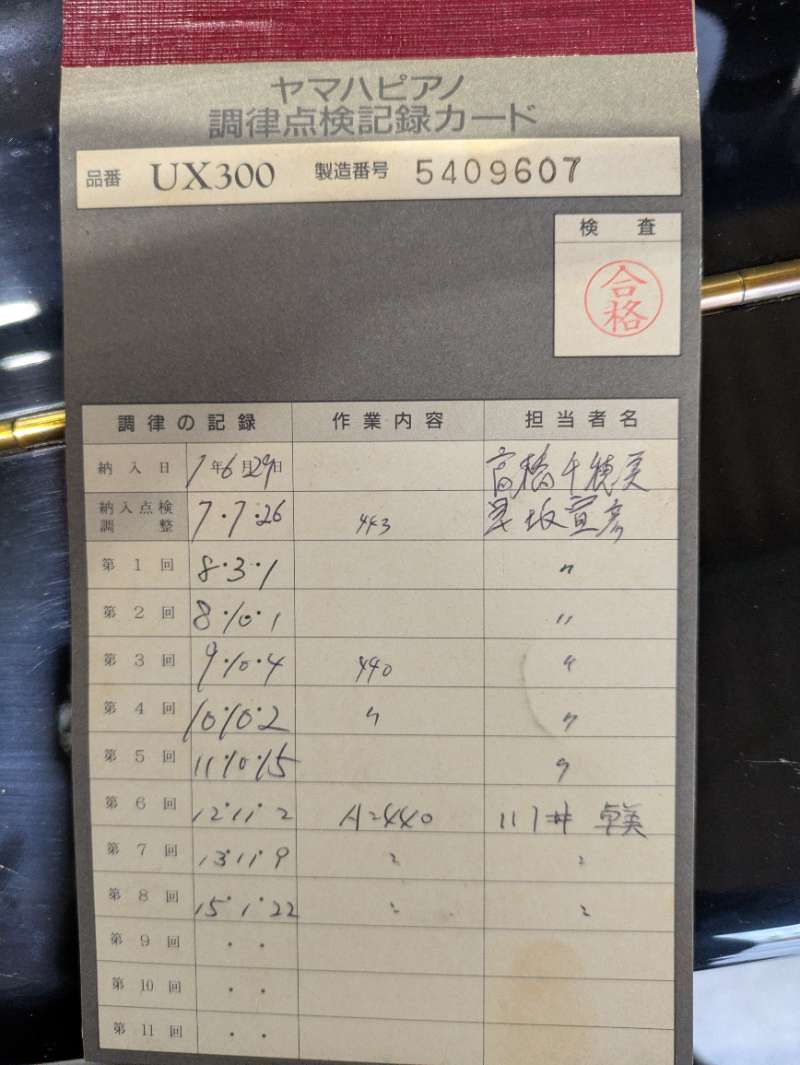 ヤマハピアノ
調律点検記録カード
品番 UX300 製造番号 5409607
検査
合格
調律の記録 作業内容 担当者名
納入日 7年6月29日 高橋千穂美
納入点検調整 7・7・26 443 坂宣彦
第1回 8・3・1 〃
第2回 8・10・1 〃
第3回 9・10・4 440 〃
第4回 10・10・2 〃 〃
第5回 11・10・15 〃
第6回 12・11・2 A=440 川井 卓美
第7回 13・11・9 〃 〃
第8回 15・1・22 〃 〃
第9回 ・ ・
第10回 ・ ・
第11回 ・ ・